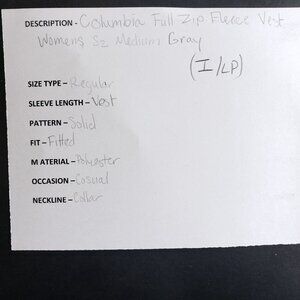 DESCRIPTION - Columbia Full Zip Fleece Vest
Womens Sz Medium Gray
(I/LP)
SIZE TYPE – Regular
SLEEVE LENGTH – Vest
PATTERN – Solid
FIT – Fitted
MATERIAL – Polyester
OCCASION – Casual
NECKLINE – Collar